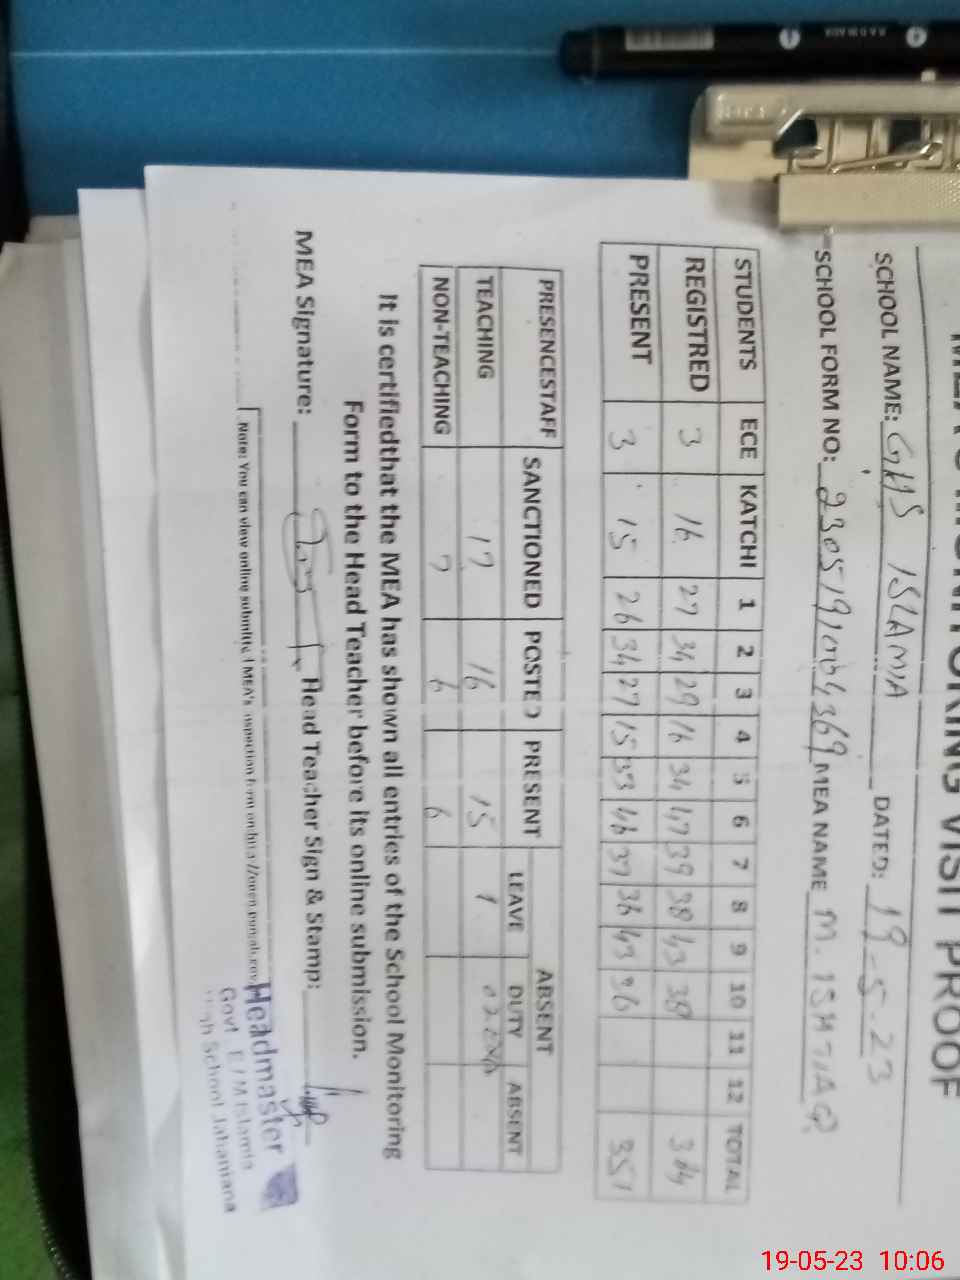 MONITORING VISIT PROOF
SCHOOL NAME: GHS ISLAMIA DATED: 19-5-23
SCHOOL FORM NO: MEA NAME M. ISHTIAQ
STUDENTS ECE KATCHI 1 2 3 4 5 6 7 8 9 10 11 12 TOTAL
REGISTRED 3 16 27 34 29 16 34 47 39 38 43 38 364
PRESENT 3 15 26 34 27 15 33 46 37 36 43 36 351
PRESENCESTAFF SANCTIONED POSTED PRESENT ABSENT
LEAVE DUTY ABSENT
TEACHING 17 16 15 1
NON-TEACHING 7 6 6
It is certifiedthat the MEA has shown all entries of the School Monitoring
Form to the Head Teacher before its online submission.
MEA Signature: Head Teacher Sign & Stamp:
Note: You can view online submitted MEA's inspection form on
Headmaster
Govt. E/M Islamia
High School Jahaniana
19-05-23 10:06